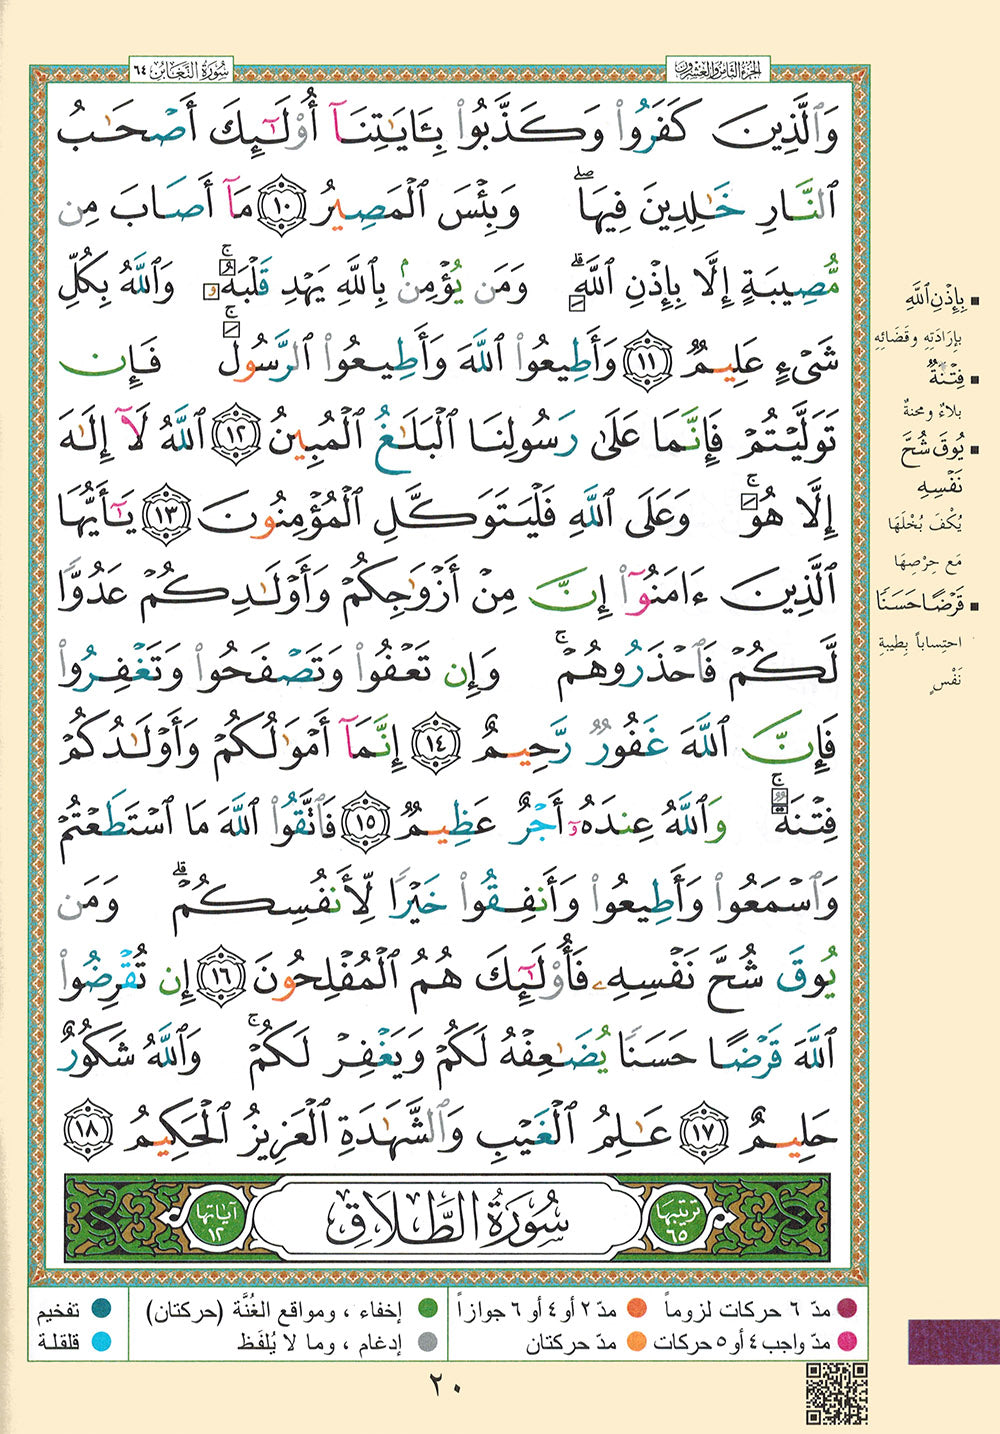 الجزء الثامن والعشرون
سورة التغابن ٦٤
وَٱلَّذِينَ كَفَرُوا۟ وَكَذَّبُوا۟ بِـَٔايَـٰتِنَآ أُو۟لَـٰٓئِكَ أَصْحَـٰبُ
ٱلنَّارِ خَـٰلِدِينَ فِيهَا ۖ وَبِئْسَ ٱلْمَصِيرُ ١٠ مَآ أَصَابَ مِن
مُّصِيبَةٍ إِلَّا بِإِذْنِ ٱللَّهِ ۗ وَمَن يُؤْمِنۢ بِٱللَّهِ يَهْدِ قَلْبَهُۥ ۚ وَٱللَّهُ بِكُلِّ
شَىْءٍ عَلِيمٌ ١١ وَأَطِيعُوا۟ ٱللَّهَ وَأَطِيعُوا۟ ٱلرَّسُولَ ۚ فَإِن
تَوَلَّيْتُمْ فَإِنَّمَا عَلَىٰ رَسُولِنَا ٱلْبَلَـٰغُ ٱلْمُبِينُ ١٢ ٱللَّهُ لَآ إِلَـٰهَ
إِلَّا هُوَ ۚ وَعَلَى ٱللَّهِ فَلْيَتَوَكَّلِ ٱلْمُؤْمِنُونَ ١٣ يَـٰٓأَيُّهَا
ٱلَّذِينَ ءَامَنُوٓا۟ إِنَّ مِنْ أَزْوَٰجِكُمْ وَأَوْلَـٰدِكُمْ عَدُوًّا
لَّكُمْ فَٱحْذَرُوهُمْ ۚ وَإِن تَعْفُوا۟ وَتَصْفَحُوا۟ وَتَغْفِرُوا۟
فَإِنَّ ٱللَّهَ غَفُورٌ رَّحِيمٌ ١٤ إِنَّمَآ أَمْوَٰلُكُمْ وَأَوْلَـٰدُكُمْ
فِتْنَةٌ ۚ وَٱللَّهُ عِندَهُۥٓ أَجْرٌ عَظِيمٌ ١٥ فَٱتَّقُوا۟ ٱللَّهَ مَا ٱسْتَطَعْتُمْ
وَٱسْمَعُوا۟ وَأَطِيعُوا۟ وَأَنفِقُوا۟ خَيْرًا لِّأَنفُسِكُمْ ۗ وَمَن
يُوقَ شُحَّ نَفْسِهِۦ فَأُو۟لَـٰٓئِكَ هُمُ ٱلْمُفْلِحُونَ ١٦ إِن تُقْرِضُوا۟
ٱللَّهَ قَرْضًا حَسَنًا يُضَـٰعِفْهُ لَكُمْ وَيَغْفِرْ لَكُمْ ۚ وَٱللَّهُ شَكُورٌ
حَلِيمٌ ١٧ عَـٰلِمُ ٱلْغَيْبِ وَٱلشَّهَـٰدَةِ ٱلْعَزِيزُ ٱلْحَكِيمُ ١٨
ترتيبها ٦٥ سُورَةُ الطَّلَاقِ آياتها ١٢
بِإِذْنِ ٱللَّهِ
بإرادَتِهِ وقَضَائِهِ
فِتْنَةٌ
بلاءٌ ومحنةٌ
يُوقَ شُحَّ
نَفْسِهِ
يُكْفَ بُخْلَهَا
مَع حِرْصِهَا
قَرْضًا حَسَنًا
احتِساباً بِطيبةِ
نَفْسٍ
مدّ ٦ حركات لزوماً
مدّ ٢ أو ٤ أو ٦ جوازاً
إخفاء ، ومواقع الغُنَّة (حركتان)
تفخيم
مدّ واجب ٤ أو ٥ حركات
مدّ حركتان
إدغام ، وما لا يُلفَظ
قلقلة
٢٠